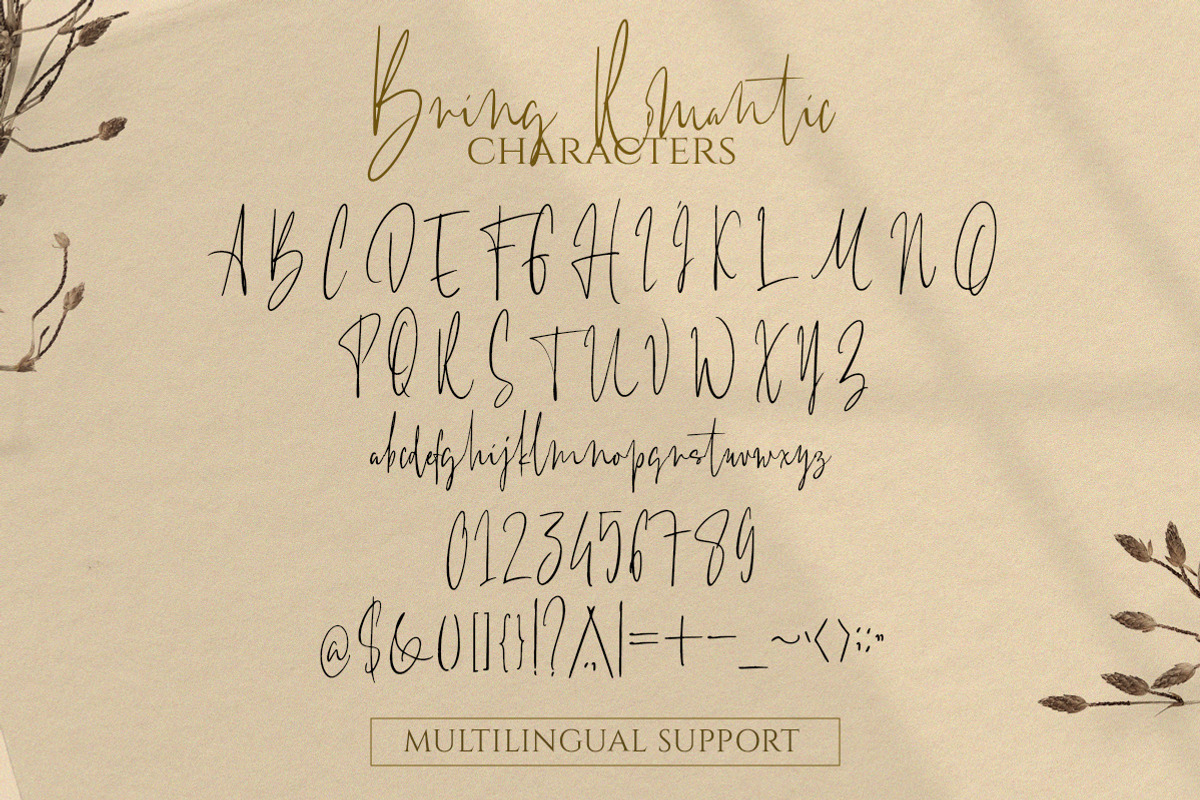 Bring Romantic
CHARACTERS
A B C D E F G H I J K L M N O
P Q R S T U V W X Y Z
abcdefghijklmnopqrstuvwxyz
0123456789
@$&()[]{}!?/\.,|=+-_~'<>;:"
MULTILINGUAL SUPPORT